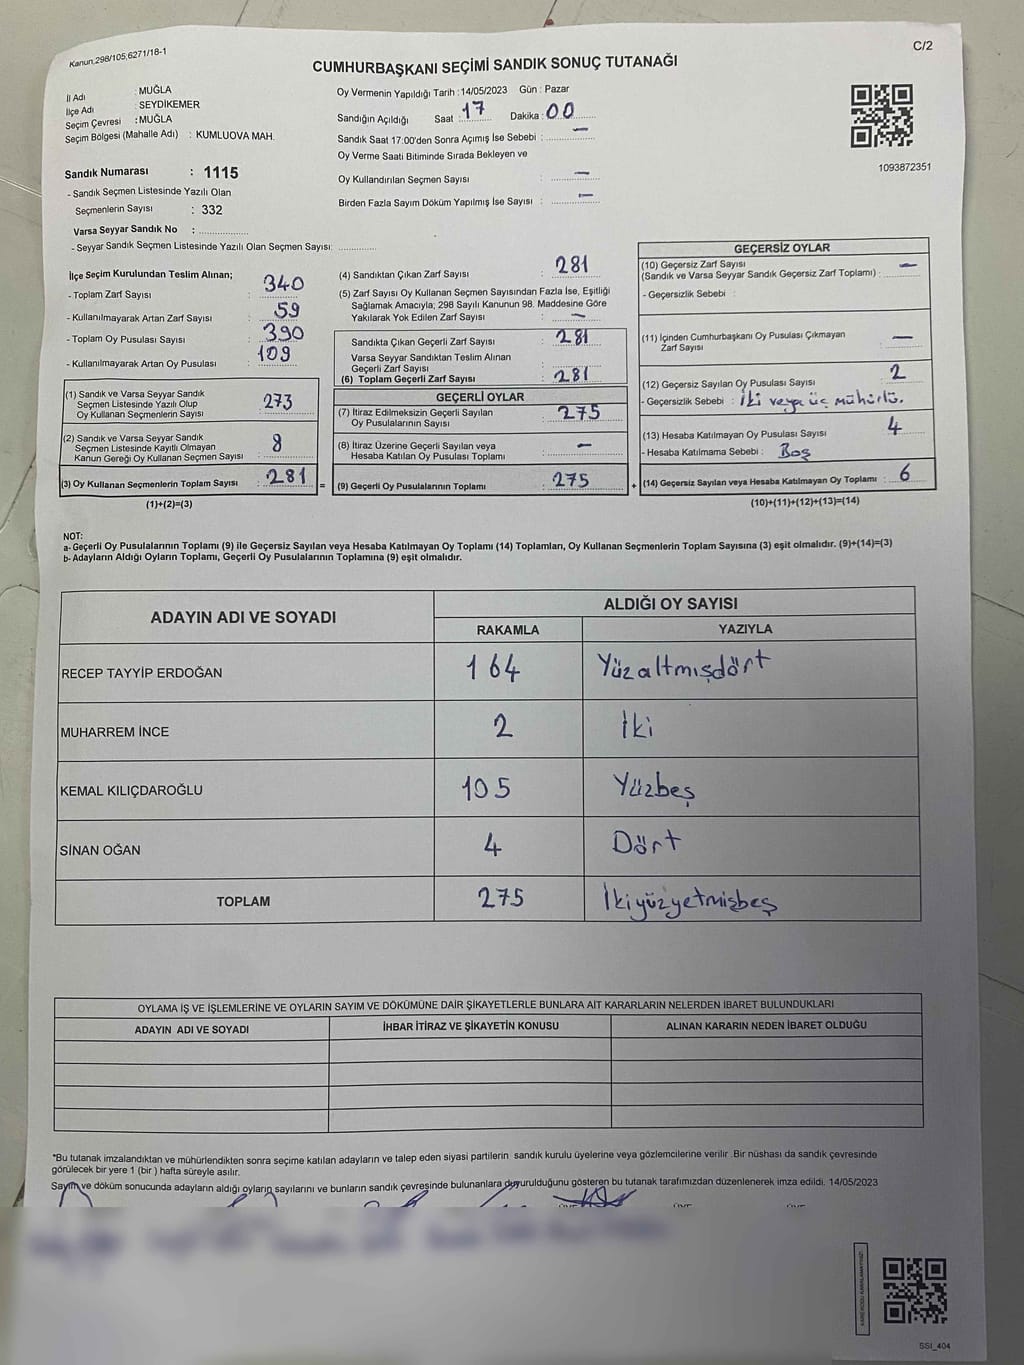 Kanun,298/105;6271/18-1
C/2
CUMHURBAŞKANI SEÇİMİ SANDIK SONUÇ TUTANAĞI
İl Adı : MUĞLA
İlçe Adı : SEYDİKEMER
Seçim Çevresi : MUĞLA
Seçim Bölgesi (Mahalle Adı) : KUMLUOVA MAH.
Oy Vermenin Yapıldığı Tarih : 14/05/2023 Gün : Pazar
Sandığın Açıldığı Saat : 17 Dakika : 00
Sandık Saat 17:00'den Sonra Açımış İse Sebebi : —
Oy Verme Saati Bitiminde Sırada Bekleyen ve
Oy Kullandırılan Seçmen Sayısı : —
Birden Fazla Sayım Döküm Yapılmış İse Sayısı : —
1093872351
Sandık Numarası : 1115
- Sandık Seçmen Listesinde Yazılı Olan
Seçmenlerin Sayısı : 332
Varsa Seyyar Sandık No : ................
- Seyyar Sandık Seçmen Listesinde Yazılı Olan Seçmen Sayısı: .............
İlçe Seçim Kurulundan Teslim Alınan;
- Toplam Zarf Sayısı : 340
- Kullanılmayarak Artan Zarf Sayısı : 59
- Toplam Oy Pusulası Sayısı : 390
- Kullanılmayarak Artan Oy Pusulası : 109
(1) Sandık ve Varsa Seyyar Sandık
Seçmen Listesinde Yazılı Olup
Oy Kullanan Seçmenlerin Sayısı : 273
(2) Sandık ve Varsa Seyyar Sandık
Seçmen Listesinde Kayıtlı Olmayan
Kanun Gereği Oy Kullanan Seçmen Sayısı : 8
(3) Oy Kullanan Seçmenlerin Toplam Sayısı : 281 =
(1)+(2)=(3)
(4) Sandıktan Çıkan Zarf Sayısı : 281
(5) Zarf Sayısı Oy Kullanan Seçmen Sayısından Fazla İse, Eşitliği
Sağlamak Amacıyla; 298 Sayılı Kanunun 98. Maddesine Göre
Yakılarak Yok Edilen Zarf Sayısı : —
Sandıkta Çıkan Geçerli Zarf Sayısı : 281
Varsa Seyyar Sandıktan Teslim Alınan
Geçerli Zarf Sayısı :
(6) Toplam Geçerli Zarf Sayısı : 281
GEÇERLİ OYLAR
(7) İtiraz Edilmeksizin Geçerli Sayılan
Oy Pusulalarının Sayısı : 275
(8) İtiraz Üzerine Geçerli Sayılan veya
Hesaba Katılan Oy Pusulası Toplamı : —
(9) Geçerli Oy Pusulalarının Toplamı : 275 +
GEÇERSİZ OYLAR
(10) Geçersiz Zarf Sayısı
(Sandık ve Varsa Seyyar Sandık Geçersiz Zarf Toplamı) : —
- Geçersizlik Sebebi :
(11) İçinden Cumhurbaşkanı Oy Pusulası Çıkmayan
Zarf Sayısı : —
(12) Geçersiz Sayılan Oy Pusulası Sayısı : 2
- Geçersizlik Sebebi : İki veya üç mühürlü.
(13) Hesaba Katılmayan Oy Pusulası Sayısı : 4
- Hesaba Katılmama Sebebi : Boş
(14) Geçersiz Sayılan veya Hesaba Katılmayan Oy Toplamı : 6
(10)+(11)+(12)+(13)=(14)
NOT:
a- Geçerli Oy Pusulalarının Toplamı (9) ile Geçersiz Sayılan veya Hesaba Katılmayan Oy Toplamı (14) Toplamları, Oy Kullanan Seçmenlerin Toplam Sayısına (3) eşit olmalıdır. (9)+(14)=(3)
b- Adayların Aldığı Oyların Toplamı, Geçerli Oy Pusulalarının Toplamına (9) eşit olmalıdır.
ADAYIN ADI VE SOYADI ALDIĞI OY SAYISI
RAKAMLA YAZIYLA
RECEP TAYYİP ERDOĞAN 164 Yüzaltmışdört
MUHARREM İNCE 2 İki
KEMAL KILIÇDAROĞLU 105 Yüzbeş
SİNAN OĞAN 4 Dört
TOPLAM 275 İkiyüzyetmişbeş
OYLAMA İŞ VE İŞLEMLERİNE VE OYLARIN SAYIM VE DÖKÜMÜNE DAİR ŞİKAYETLERLE BUNLARA AİT KARARLARIN NELERDEN İBARET BULUNDUKLARI
ADAYIN ADI VE SOYADI İHBAR İTİRAZ VE ŞİKAYETİN KONUSU ALINAN KARARIN NEDEN İBARET OLDUĞU
*Bu tutanak imzalandıktan ve mühürlendikten sonra seçime katılan adayların ve talep eden siyasi partilerin sandık kurulu üyelerine veya gözlemcilerine verilir .Bir nüshası da sandık çevresinde
görülecek bir yere 1 (bir ) hafta süreyle asılır.
Sayım ve döküm sonucunda adayların aldığı oyların sayılarını ve bunların sandık çevresinde bulunanlara duyurulduğunu gösteren bu tutanak tarafımızdan düzenlenerek imza edildi. 14/05/2023
SSI_404